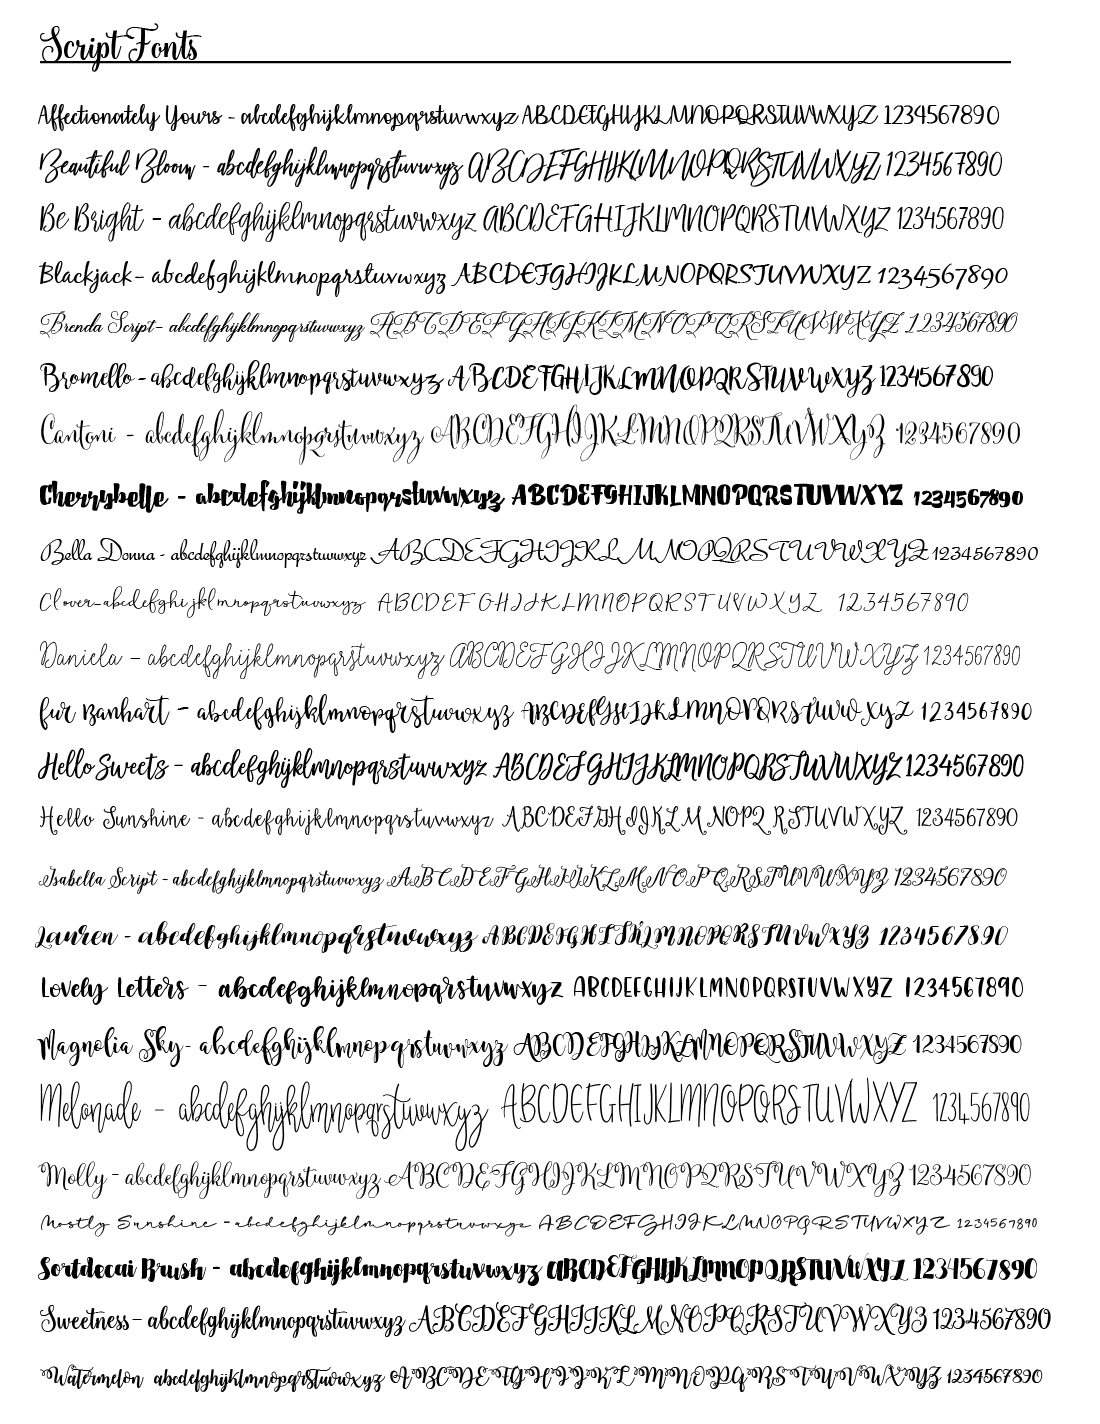 Script Fonts
Affectionately Yours - abcdefghijklmnopqrstuvwxyz ABCDEFGHIJKLMNOPQRSTUVWXYZ 1234567890
Beautiful Bloom - abcdefghijklmnopqrstuvwxyz ABCDEFGHIJKLMNOPQRSTUVWXYZ 1234567890
Be Bright - abcdefghijklmnopqrstuvwxyz ABCDEFGHIJKLMNOPQRSTUVWXYZ 1234567890
Blackjack- abcdefghijklmnopqrstuvwxyz ABCDEFGHIJKLMNOPQRSTUVWXYZ 1234567890
Brenda Script- abcdefghijklmnopqrstuvwxyz ABCDEFGHIJKLMNOPQRSTUVWXYZ 1234567890
Bromello - abcdefghijklmnopqrstuvwxyz ABCDEFGHIJKLMNOPQRSTUVWXYZ 1234567890
Cantoni - abcdefghijklmnopqrstuvwxyz ABCDEFGHIJKLMNOPQRSTUVWXYZ 1234567890
Cherrybelle - abcdefghijklmnopqrstuvwxyz ABCDEFGHIJKLMNOPQRSTUVWXYZ 1234567890
Bella Donna - abcdefghijklmnopqrstuvwxyz ABCDEFGHIJKLMNOPQRSTUVWXYZ 1234567890
Clover-abcdefghijklmnopqrstuvwxyz ABCDEFGHIJKLMNOPQRSTUVWXYZ 1234567890
Daniela - abcdefghijklmnopqrstuvwxyz ABCDEFGHIJKLMNOPQRSTUVWXYZ 1234567890
fur Banhart - abcdefghijklmnopqrstuvwxyz ABCDEFGHIJKLMNOPQRSTUVWXYZ 1234567890
Hello Sweets - abcdefghijklmnopqrstuvwxyz ABCDEFGHIJKLMNOPQRSTUVWXYZ 1234567890
Hello Sunshine - abcdefghijklmnopqrstuvwxyz ABCDEFGHIJKLMNOPQRSTUVWXYZ 1234567890
Isabella Script - abcdefghijklmnopqrstuvwxyz ABCDEFGHIJKLMNOPQRSTUVWXYZ 1234567890
Lauren - abcdefghijklmnopqrstuvwxyz ABCDEFGHIJKLMNOPQRSTUVWXYZ 1234567890
Lovely Letters - abcdefghijklmnopqrstuvwxyz ABCDEFGHIJKLMNOPQRSTUVWXYZ 1234567890
Magnolia Sky- abcdefghijklmnopqrstuvwxyz ABCDEFGHIJKLMNOPQRSTUVWXYZ 1234567890
Melonade - abcdefghijklmnopqrstuvwxyz ABCDEFGHIJKLMNOPQRSTUVWXYZ 1234567890
Molly - abcdefghijklmnopqrstuvwxyz ABCDEFGHIJKLMNOPQRSTUVWXYZ 1234567890
Mostly Sunshine - abcdefghijklmnopqrstuvwxyz ABCDEFGHIJKLMNOPQRSTUVWXYZ 1234567890
Sortdecai Brush - abcdefghijklmnopqrstuvwxyz ABCDEFGHIJKLMNOPQRSTUVWXYZ 1234567890
Sweetness - abcdefghijklmnopqrstuvwxyz ABCDEFGHIJKLMNOPQRSTUVWXYZ 1234567890
Watermelon abcdefghijklmnopqrstuvwxyz ABCDEFGHIJKLMNOPQRSTUVWXYZ 1234567890